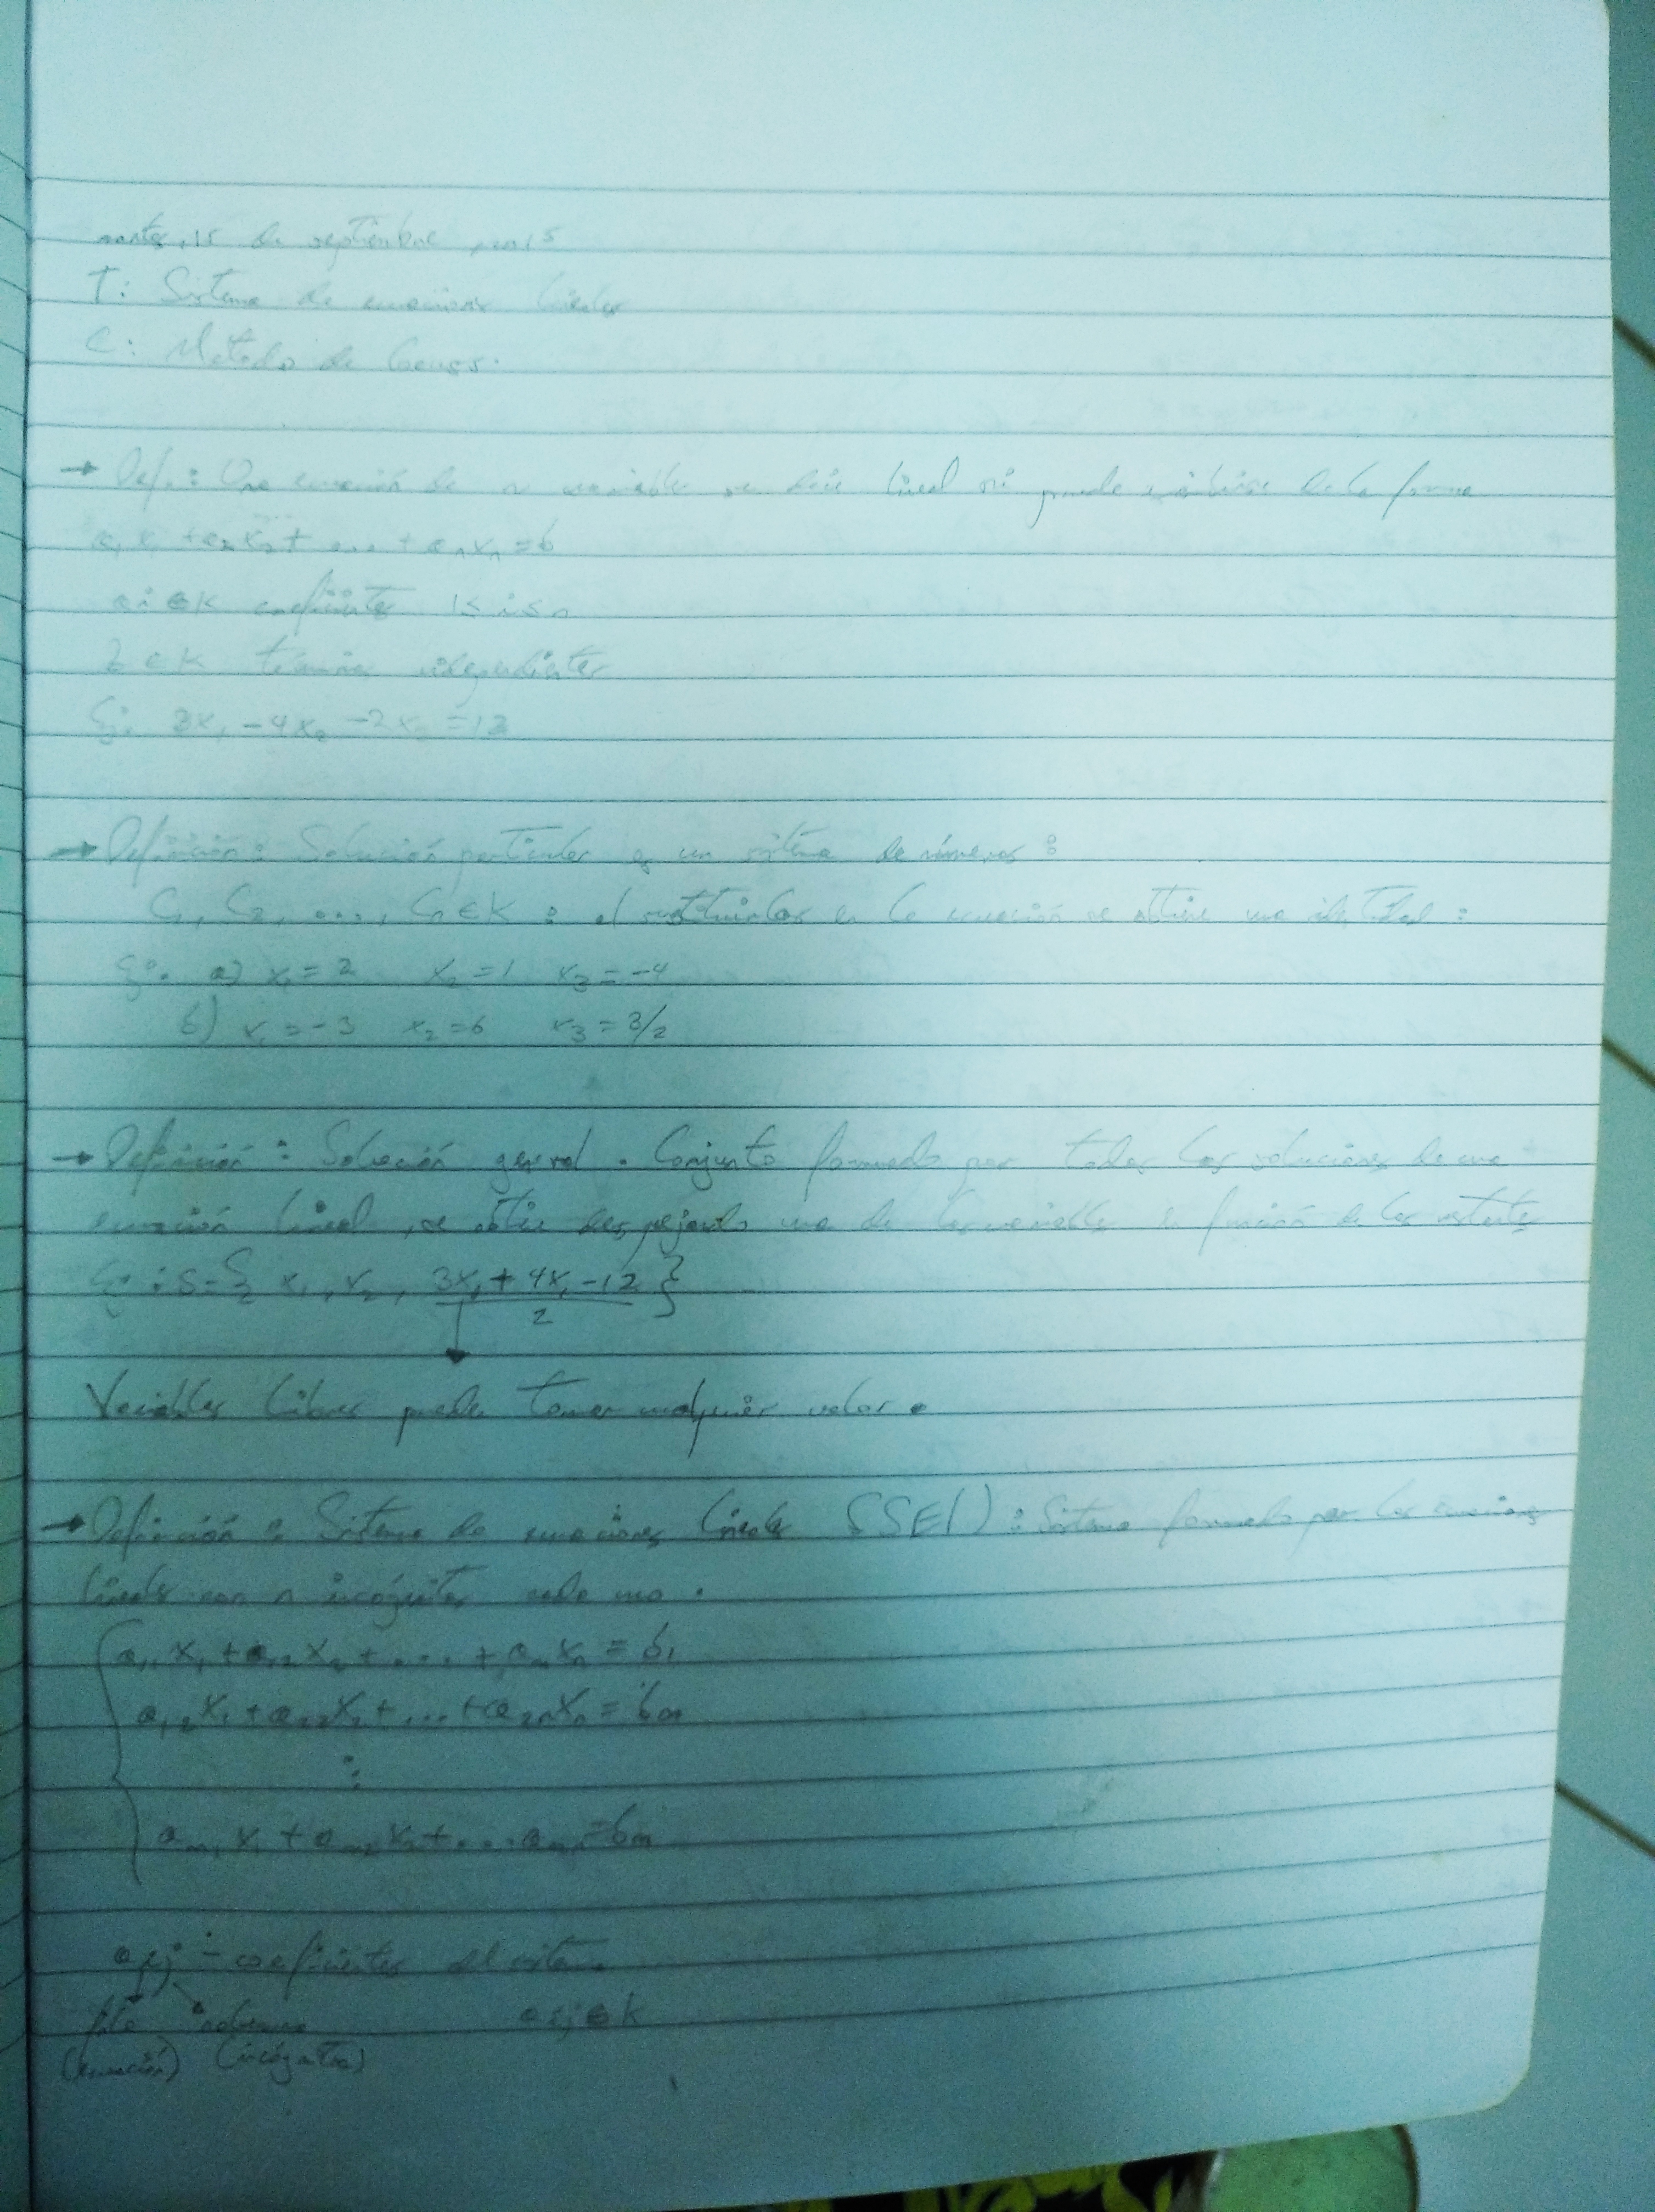 martes, 15 de septiembre, 2015
T: Sistema de ecuaciones lineales
C: Método de Gauss.
→ Def.: Una ecuación de n variables se dice lineal si puede escribirse de la forma
a₁x₁ + a₂x₂ + ... + aₙxₙ = b
ai ∈ K coeficientes 1 ≤ i ≤ n
b ∈ K término independientes
Ej: 3x₁ - 4x₂ - 2x₃ = 13
→ Definición: Solución particular es un sistema de números:
C₁, C₂, ..., Cn ∈ K : al sustituirlos en la ecuación se obtiene una identidad:
Ej: a) x₁ = 2 x₂ = 1 x₃ = -4
b) x₁ = -3 x₂ = 6 x₃ = 3/2
→ Definición: Solución general. Conjunto formado por todas las soluciones de una
ecuación lineal, se obtiene despejando una de las variables en función de las restantes
Ej: S = { x₁, x₂, (3x₁ + 4x₁ - 12)/2 }
Variables libres puede tomar cualquier valor.
→ Definición: Sistema de ecuaciones lineales (SEL) : Sistema formado por las ecuaciones
lineales con n incógnitas cada una.
a₁₁x₁ + a₁₂x₂ + ... + aₙxₙ = b₁
a₁₂x₁ + a₂₂x₂ + ... + a₂ₙxₙ = bm
⋮
am₁x₁ + am₂x₂ + ... amn = bm
aij - coeficientes del sistema
fila columna aij ∈ k
(ecuación) (incógnita)